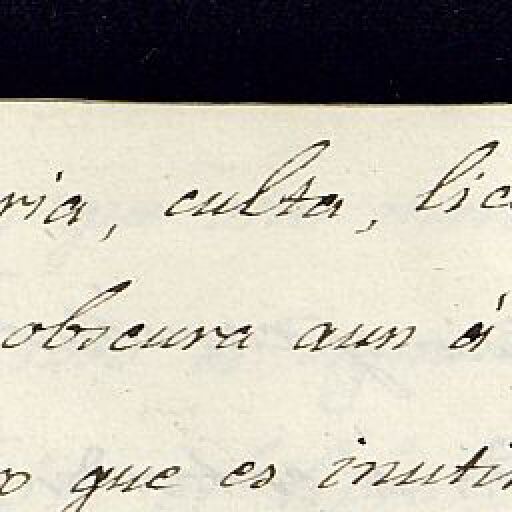 ria, culta, lic
obscura aun á
o que es inuti